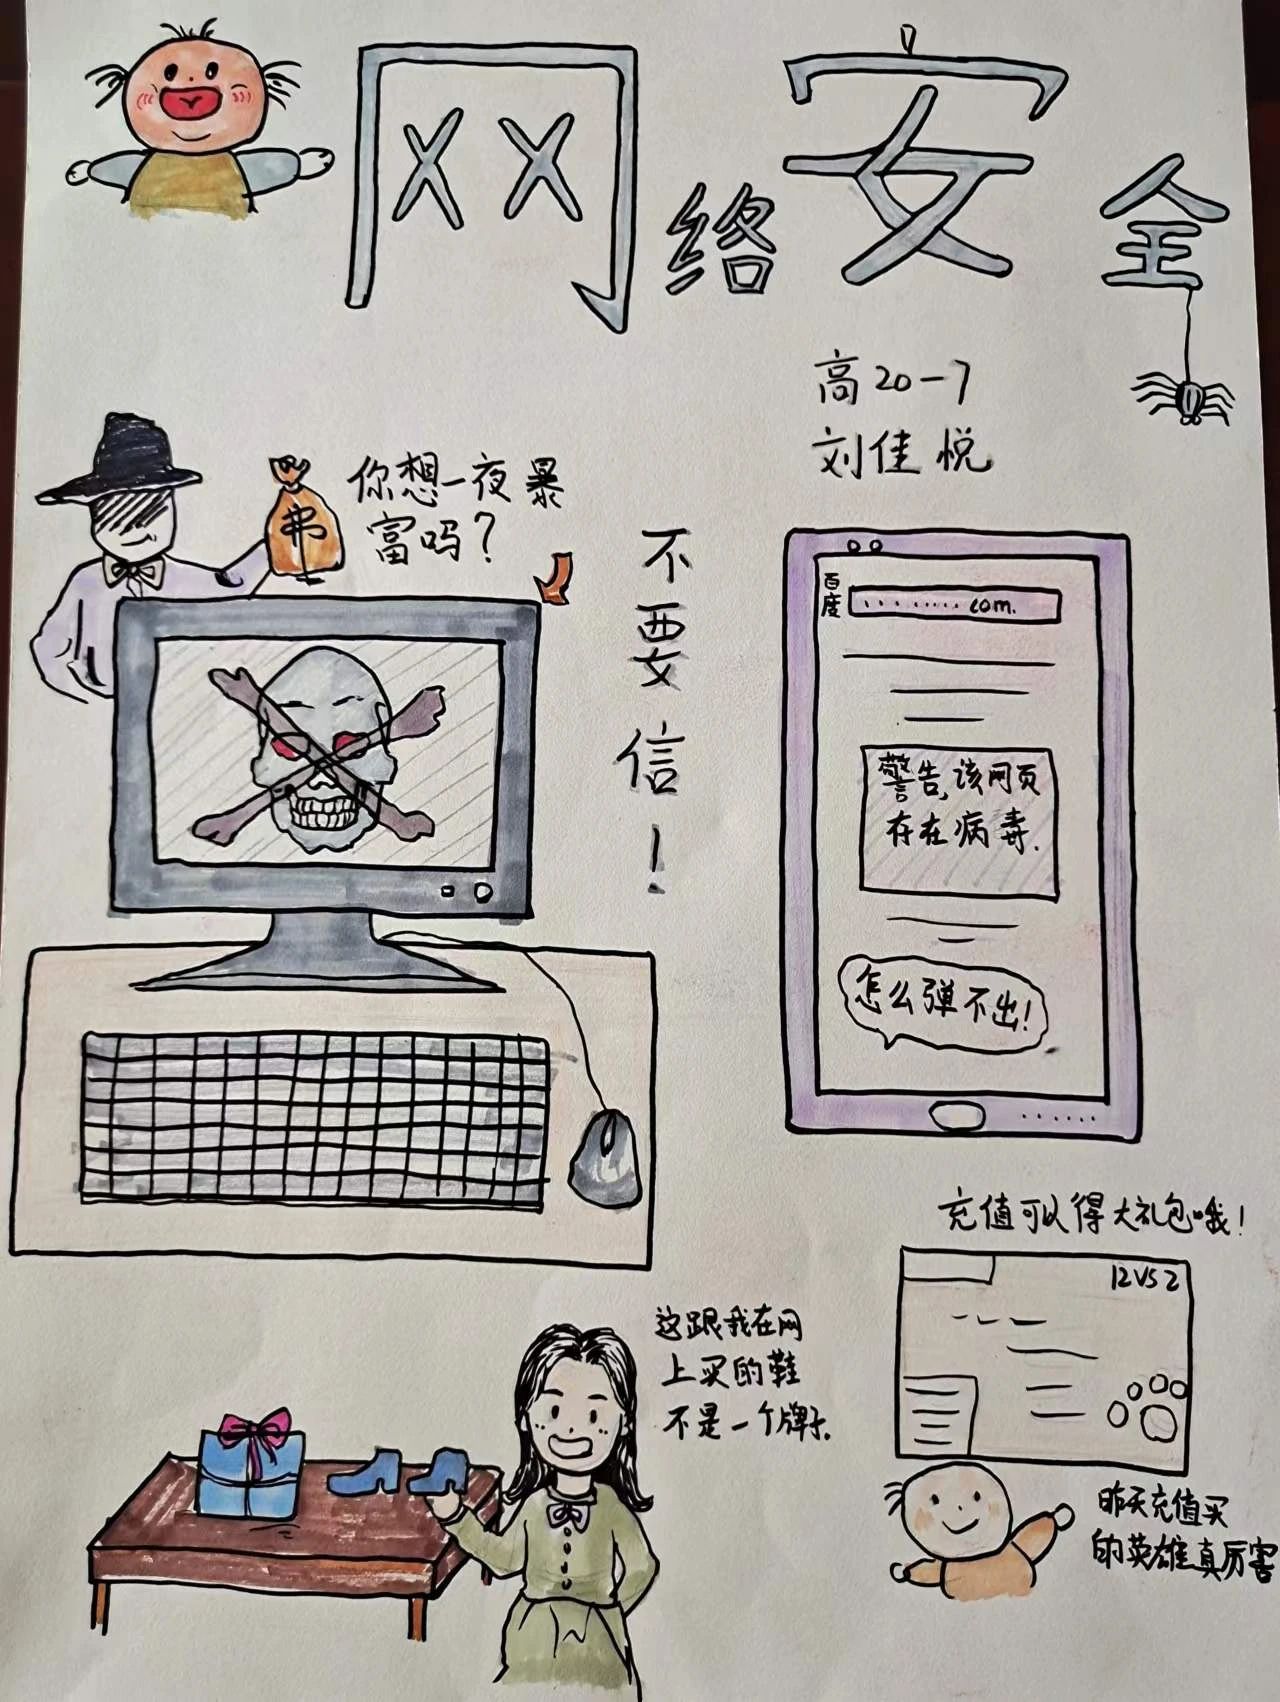 网络安全
高20-7
刘佳悦
你想一夜暴
富吗？
弗
不要信！
百度
........com.
警告,该网页
存在病毒.
怎么弹不出!
充值可以得大礼包哦!
12VS2
这跟我在网
上买的鞋
不是一个牌子.
昨天充值买
的英雄真厉害